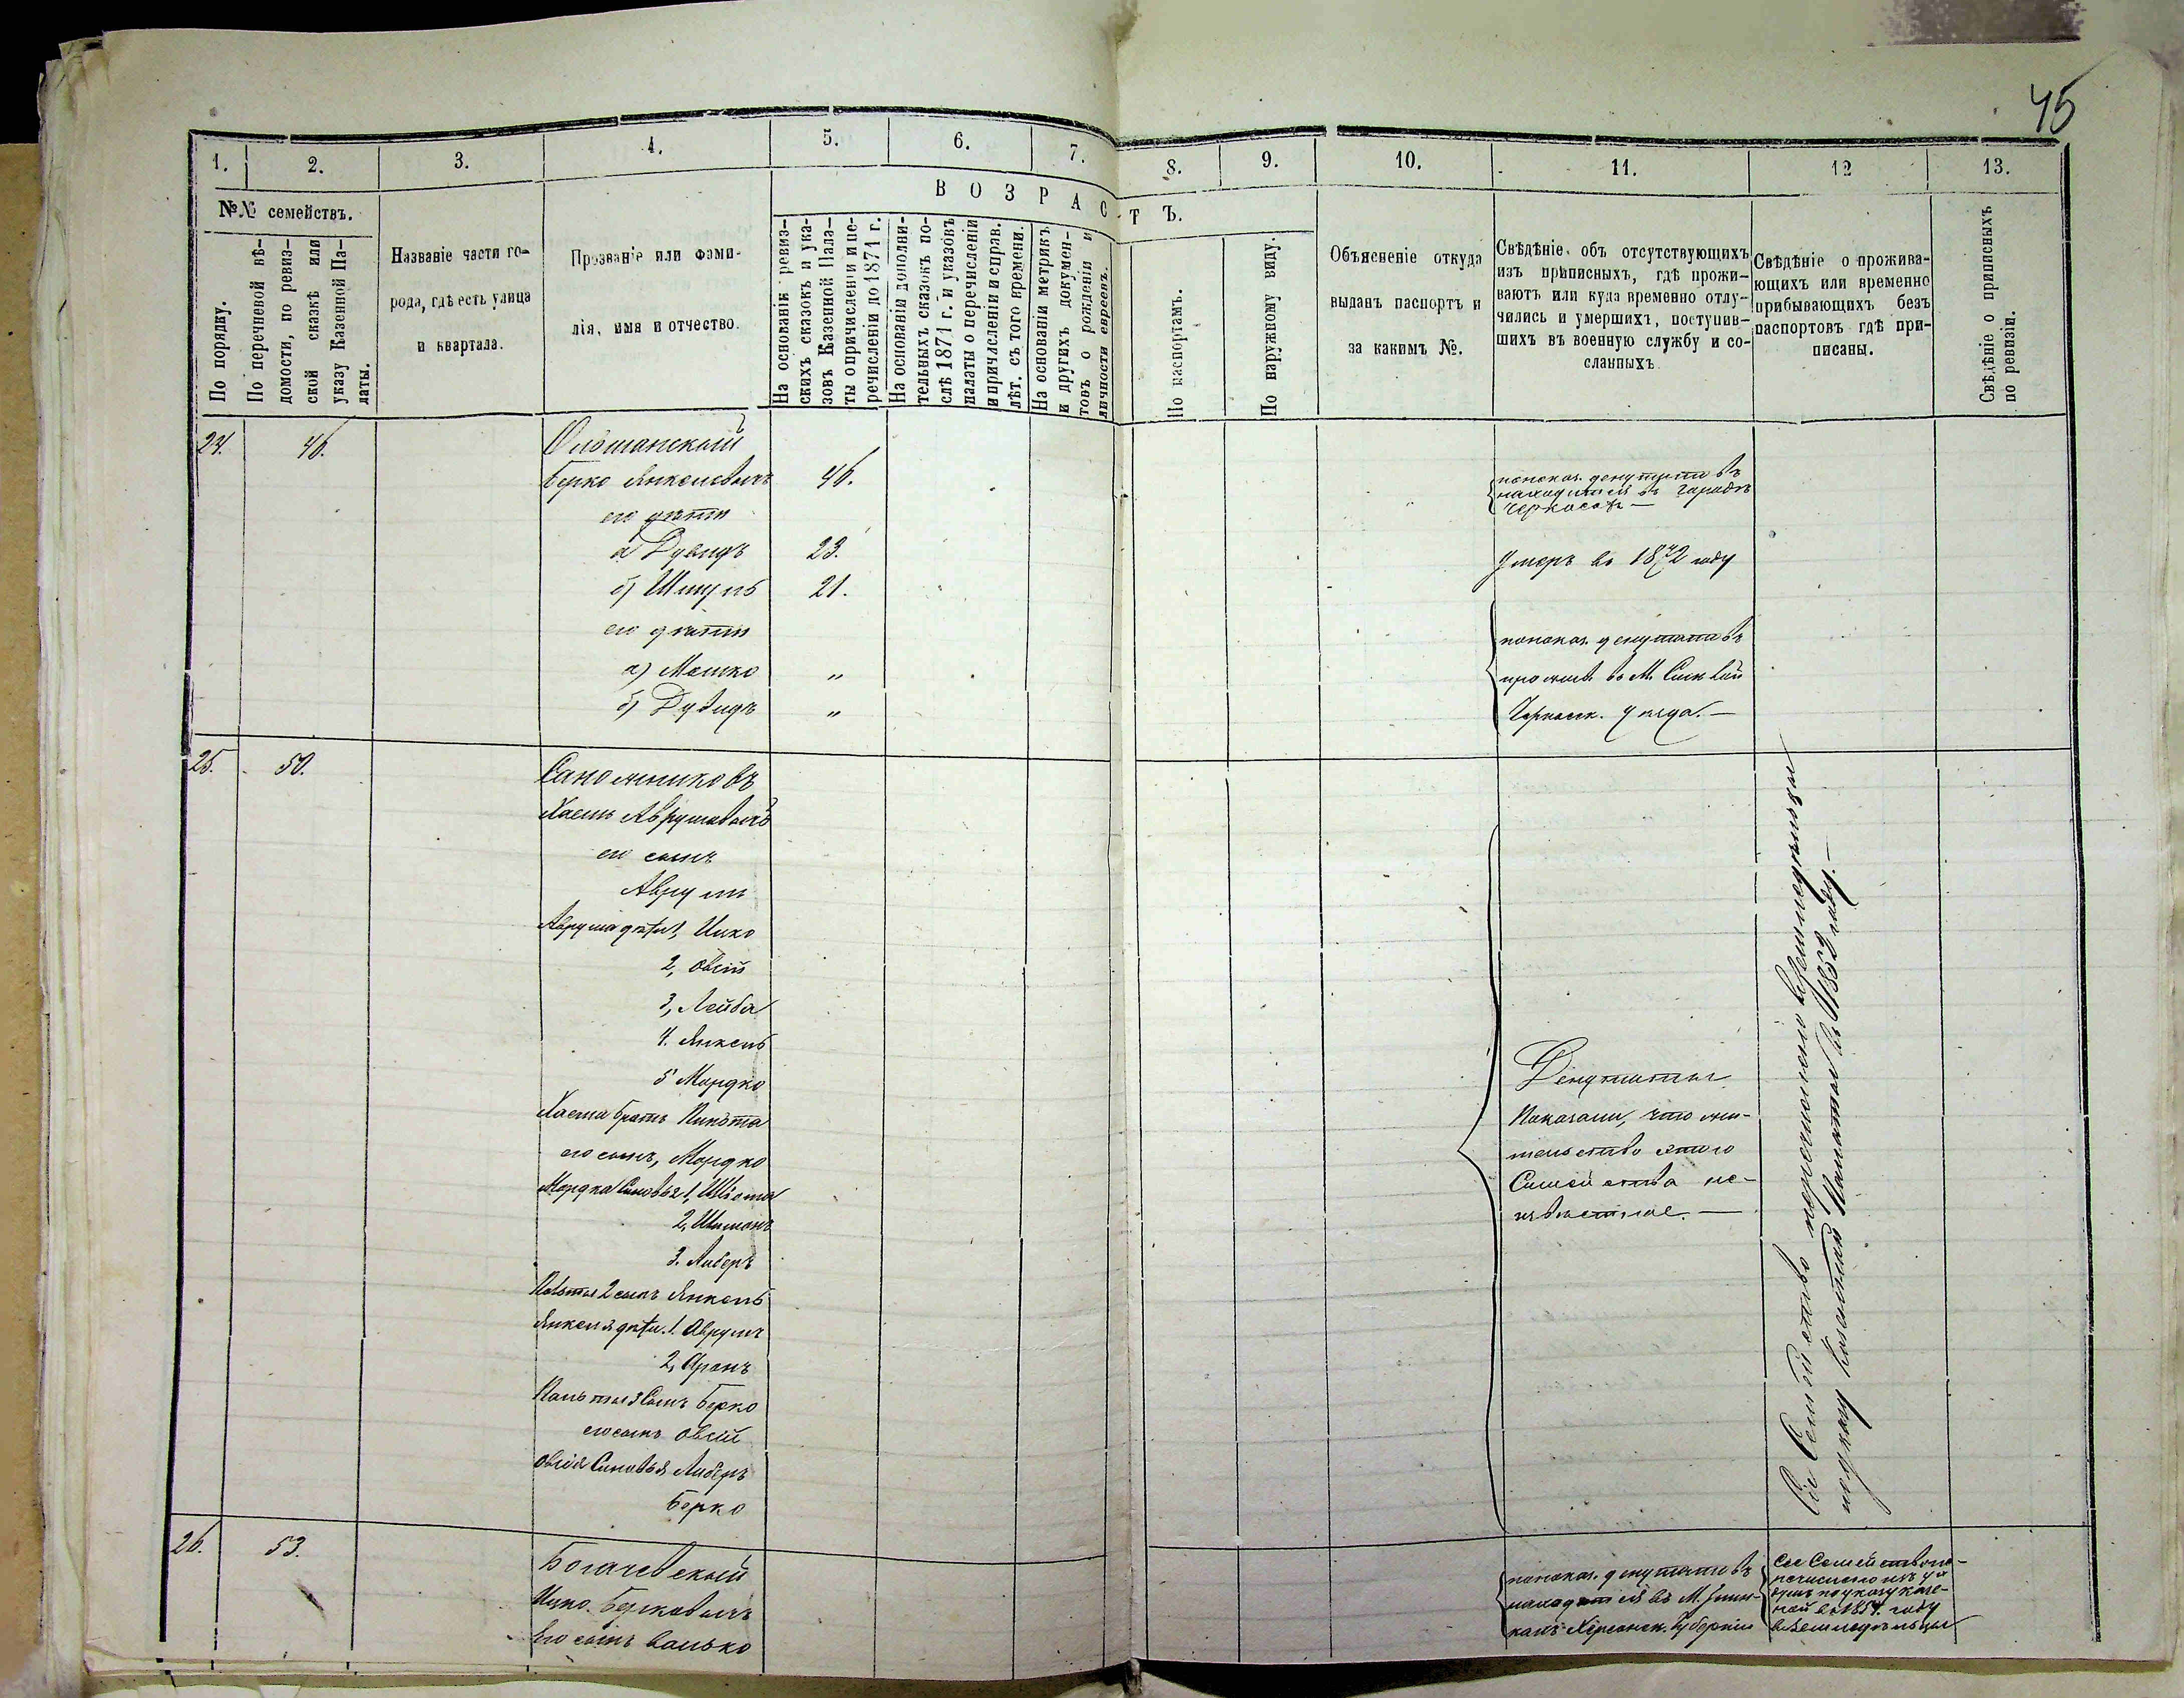 45
1.
2.
3.
4.
5.
6.
7.
8.
9.
10.
11.
12
13.
№№ семействъ.
По порядку.
По перечневой вѣ-
домости, по ревиз-
ской сказкѣ или
указу Казенной Па-
латы.
Названіе части го-
рода, гдѣ есть улица
и квартала.
Прозваніе или фами-
лія, имя и отчество.
ВОЗРАСТЪ.
На основаніи ревиз-
скихъ сказокъ и ука-
зовъ Казенной Пала-
ты о причисленіи и пе-
речисленіи до 1871 г.
На основаніи дополни-
тельныхъ сказокъ по-
слѣ 1871 г. и указовъ
палаты о перечисленіи
и причисленіи и справ.
лѣт. съ того времени.
На основаніи метрикъ
и другихъ докумен-
товъ о рожденіи и
личности евреевъ.
По паспортамъ.
По наружному виду.
Объясненіе откуда
выданъ паспортъ и
за какимъ №.
Свѣдѣніе объ отсутствующихъ
изъ приписныхъ, гдѣ прожи-
ваютъ или куда временно отлу-
чились и умершихъ, поступив-
шихъ въ военную службу и со-
сланныхъ
Свѣдѣніе о прожива-
ющихъ или временно
прибывающихъ безъ
паспортовъ гдѣ при-
писаны.
Свѣдѣніе о приписныхъ
по ревизіи.
24. 46. Ольшанскій
Берко Янкелевичъ 46.
его дѣти
а Дувидъ 23.
б) Шмуль 21.
его дѣти
а) Мошко „
б) Дувидъ „
по показ. депутатовъ
находится въ городѣ
Черкасахъ —
Умеръ въ 1872 году
по показ. депутатовъ
прожив. въ М.
Черкасск. уѣзда. —
25. 50. Сапожниковъ
Хаемъ Аврумовичъ
его сынъ
Аврумъ
Аврума дѣти 1, Ицко
2, Овсій
3, Лейба
4. Янкель
5 Мордко
Хаема братъ
его сынъ, Мордко
Мордка Сыновья 1,
2, Шимонъ
3. Либеръ
2 сынъ Янкель
Янкеля дѣти. 1. Аврумъ
2, Аронъ
3 Сынъ Берко
его сынъ Овсій
Овсія Сыновья Либеръ
Берко
Депутаты
Показали, что жи-
тельство этого
Семейства не-
извѣстное. —
Сіе Семейство перечислено въ земледѣльцы
по указу Казенной Палаты въ 1852 году. —
26. 53. Богачевскій
Ицко Берковичъ
Его сынъ Волько
по показ. депутатовъ
находится въ М.
Херсонск. Губерніи
Сіе Семейство пе-
речислено изъ
по указу Казе-
ной въ 1854. году
въ Земледѣльцы